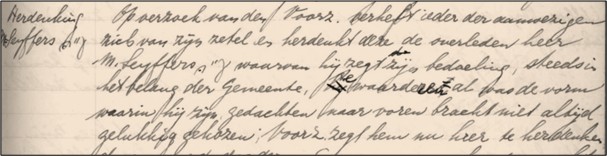 Herdenking
Seyffers
Op verzoek van den Voorz. verheft ieder der aanwezigen
zich van zijn zetel en herdenkt deze de overleden heer
M. Seyffers, waarvan hij zegt zijn bedoeling, steeds in
het belang der Gemeente, te waardeeren al was de vorm
waarin hij zijn gedachten naar voren bracht niet altijd
gelukkig gekozen; Voorz. zegt hem nu hier te herdenken